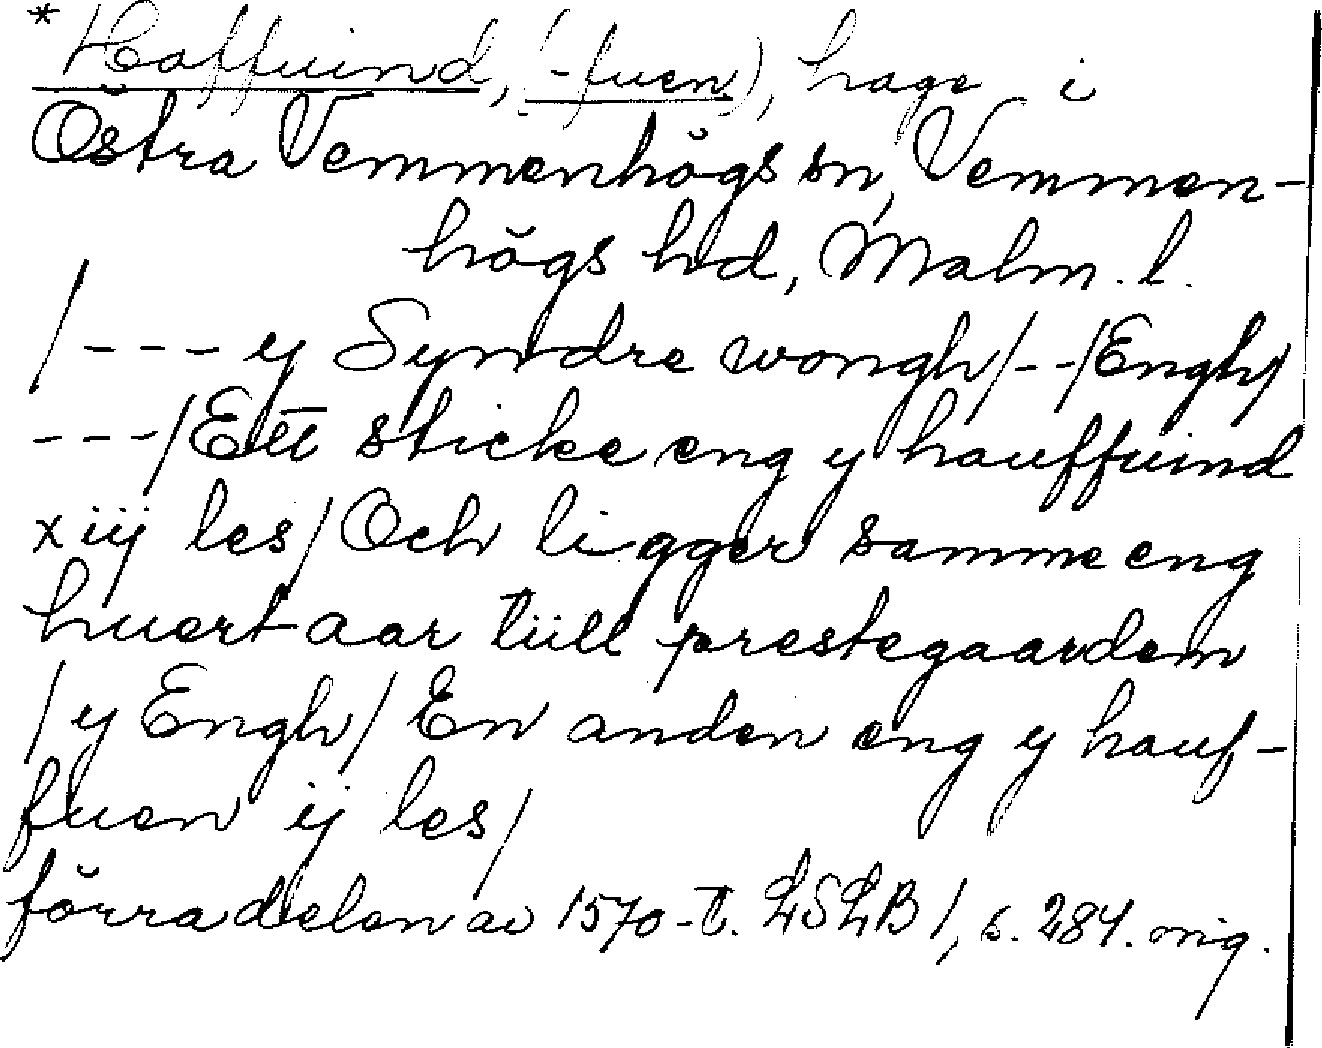 *Haffuind, (-fuen), hage i
Östra Vemmenhögs sn, Vemmen-
högs hd, Malm. l.
/--- y Syndre wongh/--/Engh/
---/Ett sticke eng y hauffuind
xiij les/ Och ligger samme eng
huert aar tüll prestegaarden
/y Engh/ En anden eng y hauf-
fuen ij les/
förra delen av 1570-t. LSLB 1, s. 284. orig.